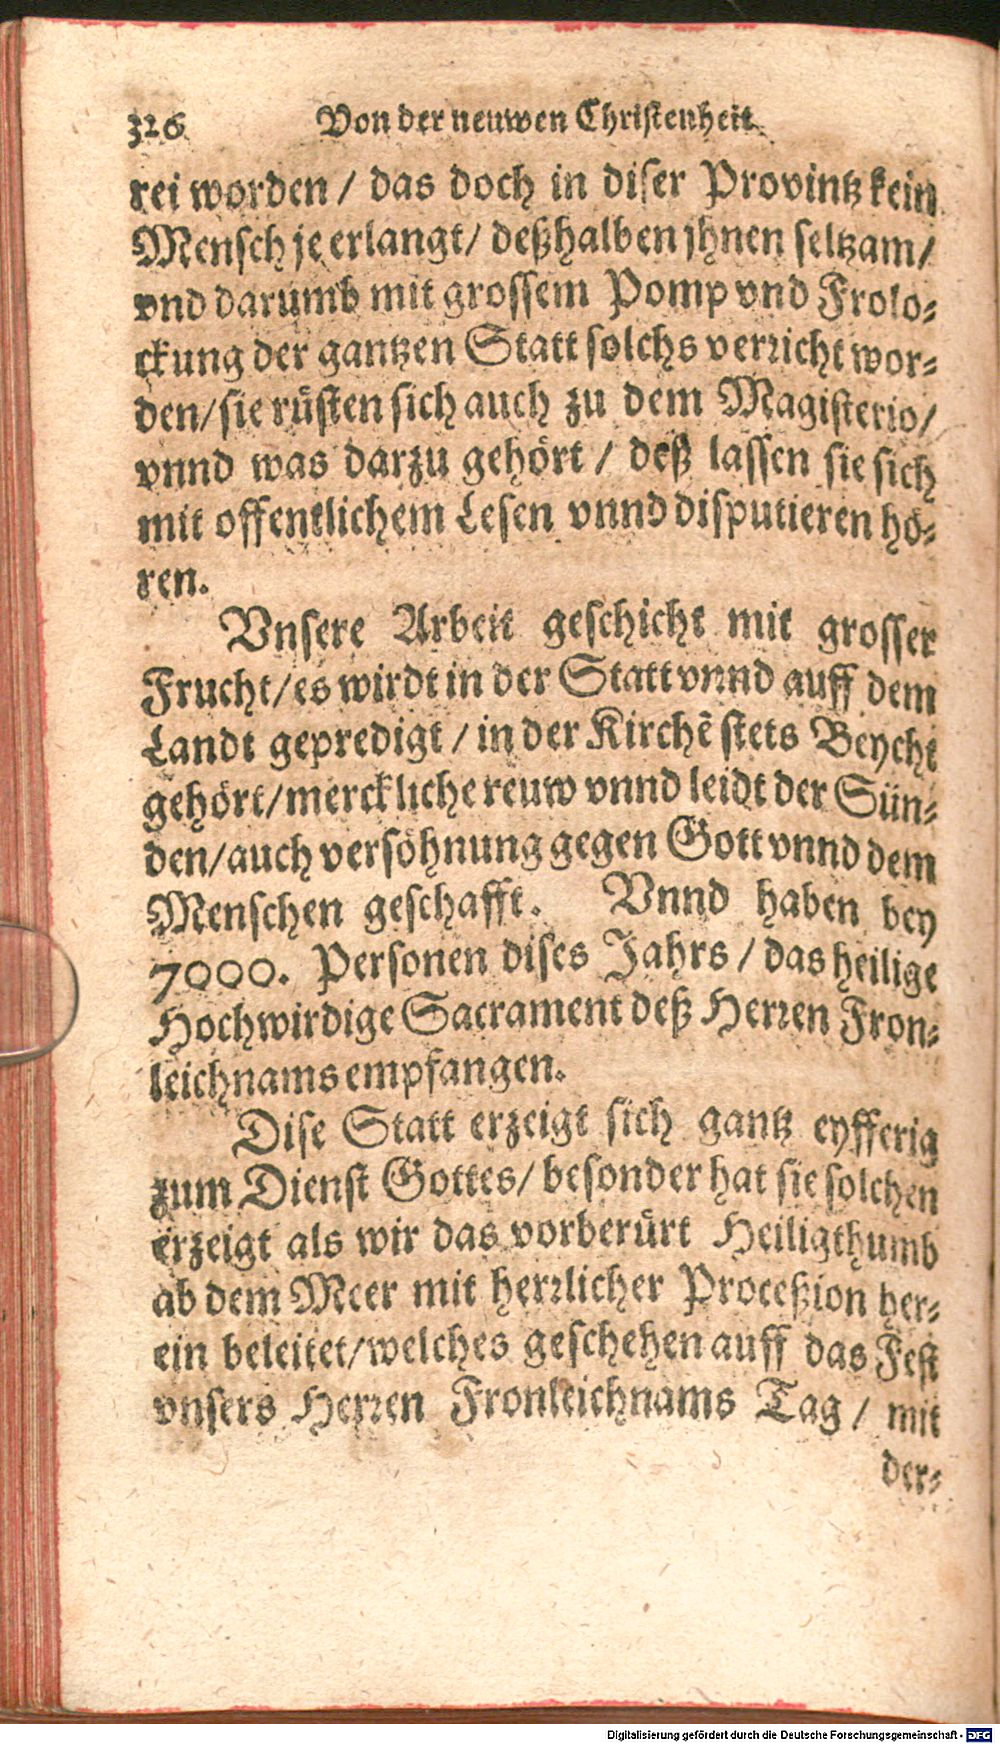 326 Von der neuwen Christenheit
rei worden / das doch in diser Provintz kein
Mensch je erlangt / deßhalben jhnen seltzam /
vnd darumb mit grossem Pomp vnd Frolo-
ckung der gantzen Statt solchs verricht wor-
den / sie rüsten sich auch zu dem Magisterio /
vnnd was darzu gehört / deß lassen sie sich
mit offentlichem Lesen vnnd disputieren hö-
ren.
Vnsere Arbeit geschicht mit grosser
Frucht / es wirdt in der Statt vnnd auff dem
Landt gepredigt / in der Kirchẽ stets Beycht
gehört / merckliche reuw vnnd leidt der Sün-
den / auch versöhnung gegen Gott vnnd dem
Menschen geschafft. Vnnd haben bey
7000. Personen dises Jahrs / das heilige
Hochwirdige Sacrament deß Herren Fron-
leichnams empfangen.
Dise Statt erzeigt sich gantz eyfferig
zum Dienst Gottes / besonder hat sie solchen
erzeigt als wir das vorberürt Heiligthumb
ab dem Meer mit herrlicher Proceßion her-
ein beleitet / welches geschehen auff das Fest
vnsers Herren Fronleichnams Tag / mit
der-
Digitalisierung gefördert durch die Deutsche Forschungsgemeinschaft - DFG